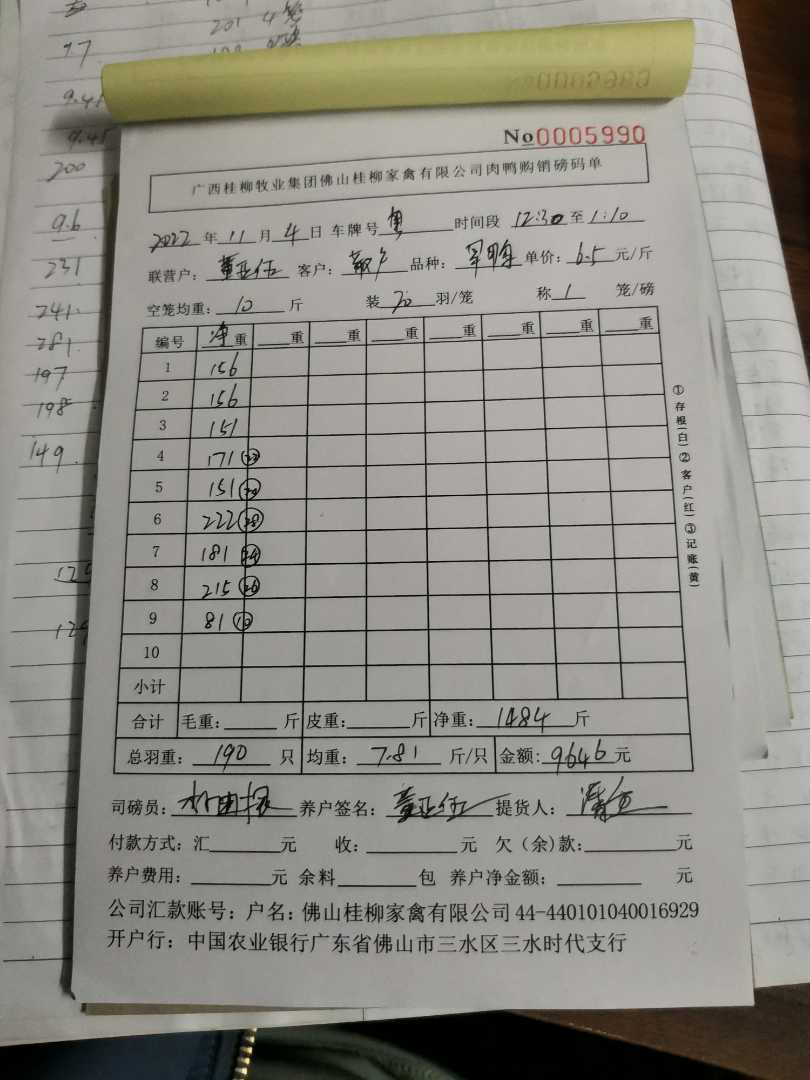 9.7
201 4笼
9.45
9.45
200
9.6
231
241
281
197
198
149
No0005990
广西桂柳牧业集团佛山桂柳家禽有限公司肉鸭购销磅码单
2022年11月4日 车牌号 时间段 12:30至1:10
联营户：董正伍 客户：散户 品种： 单价：6.5元/斤
空笼均重：10斤 装20羽/笼 称1笼/磅
编号 净重 重 重 重 重 重 重 重
1 156
2 156
3 151
4 171
5 151
6 222 28
7 181 24
8 215 26
9 81
10
小计
合计 毛重： 斤 皮重： 斤 净重：1484斤
总羽重：190只 均重：7.81斤/只 金额：9646元
司磅员： 养户签名：董正伍 提货人：
付款方式：汇 元 收： 元 欠（余）款： 元
养户费用： 元 余料 包 养户净金额： 元
公司汇款账号：户名：佛山桂柳家禽有限公司 44-440101040016929
开户行：中国农业银行广东省佛山市三水区三水时代支行
①存根(白)②客户(红)③记账(黄)